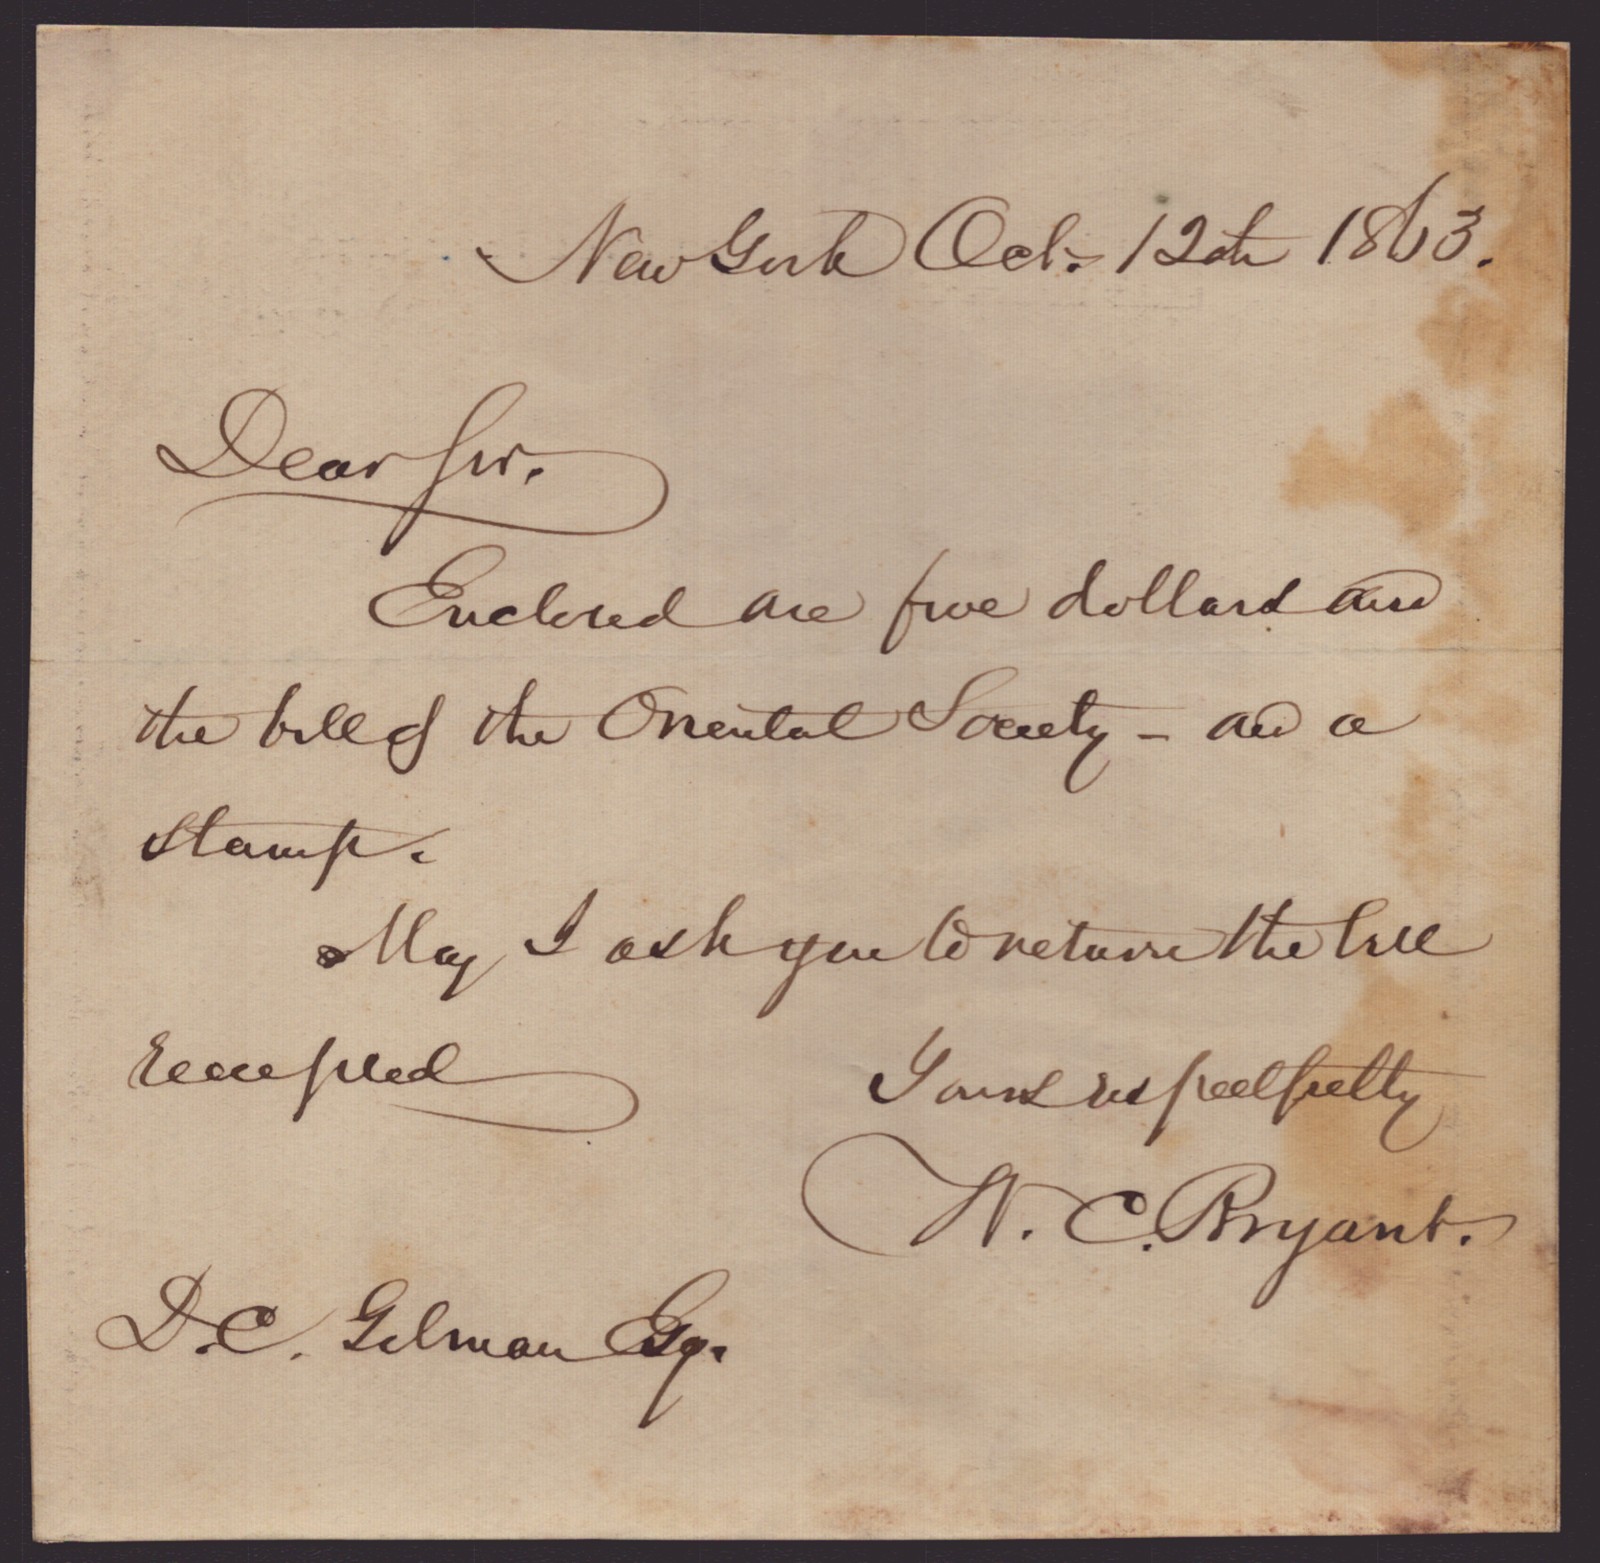 New York Oct. 12th 1863.
Dear Sir.
Enclosed are five dollars and
the bill of the Oriental Society - and a
stamp.
May I ask you to return the bill
receipted
Yours respectfully
W. C. Bryant.
D. C. Gilman Esq.